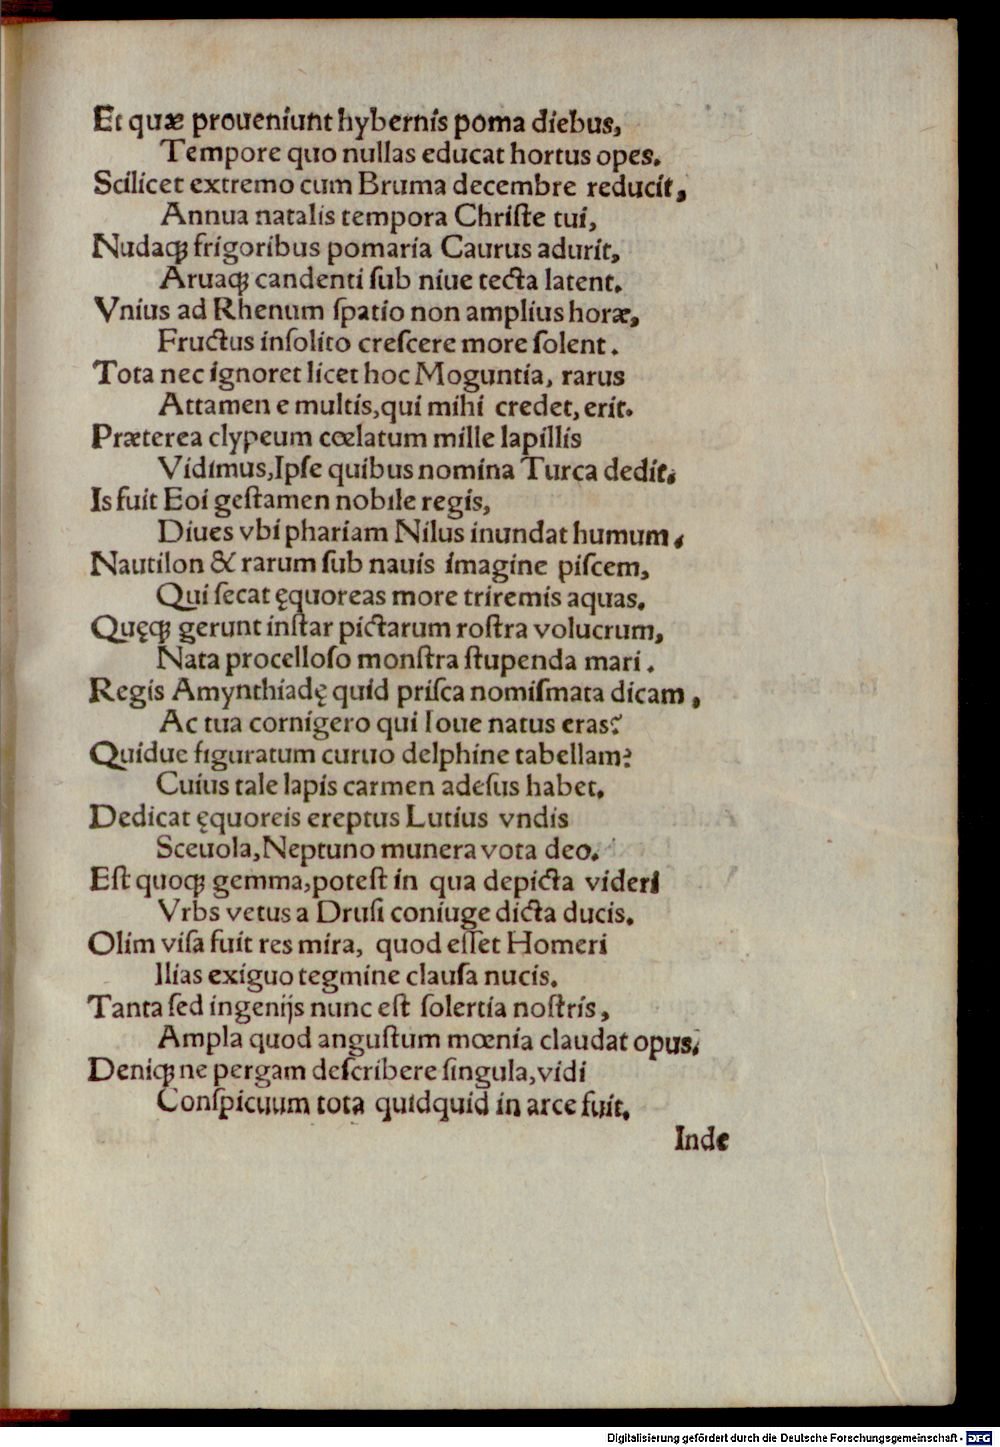 Et quæ proueniunt hybernis poma diebus,
Tempore quo nullas educat hortus opes.
Scilicet extremo cum Bruma decembre reducit,
Annua natalis tempora Chriſte tui,
Nudaqꝫ frigoribus pomaria Caurus adurit,
Aruaqꝫ candenti ſub niue tecta latent.
Vnius ad Rhenum ſpatio non amplius horæ,
Fructus inſolito creſcere more ſolent.
Tota nec ignoret licet hoc Moguntia, rarus
Attamen e multis, qui mihi credet, erit.
Præterea clypeum cœlatum mille lapillis
Vidimus, Ipſe quibus nomina Turca dedit.
Is fuit Eoi geſtamen nobile regis,
Diues vbi phariam Nilus inundat humum.
Nautilon & rarum ſub nauis imagine piſcem,
Qui ſecat ęquoreas more triremis aquas.
Quęqꝫ gerunt inſtar pictarum roſtra volucrum,
Nata procelloſo monſtra ſtupenda mari.
Regis Amynthiadę quid priſca nomiſmata dicam,
Ac tua cornigero qui Ioue natus eras?
Quidue figuratum curuo delphine tabellam?
Cuius tale lapis carmen adeſus habet.
Dedicat ęquoreis ereptus Lutius vndis
Sceuola, Neptuno munera vota deo.
Eſt quoqꝫ gemma, poteſt in qua depicta videri
Vrbs vetus a Druſi coniuge dicta ducis.
Olim viſa fuit res mira, quod eſſet Homeri
Ilias exiguo tegmine clauſa nucis.
Tanta ſed ingenijs nunc eſt ſolertia noſtris,
Ampla quod anguſtum mœnia claudat opus.
Deniqꝫ ne pergam deſcribere ſingula, vidi
Conſpicuum tota quidquid in arce fuit.
Inde
Digitalisierung gefördert durch die Deutsche Forschungsgemeinschaft - DFG